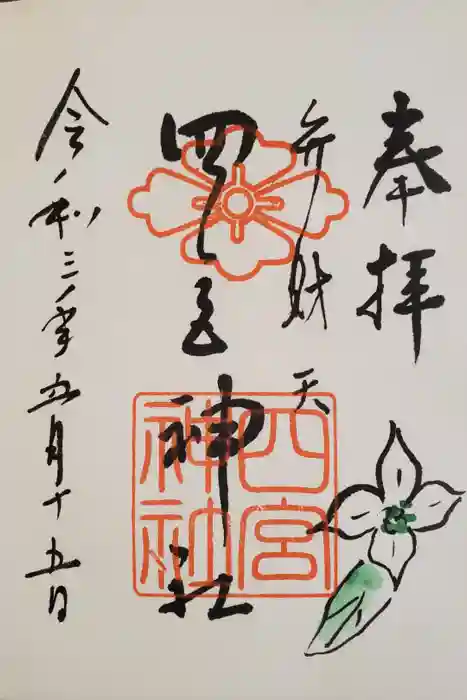 奉拝
弁財天
四宮神社
四宮
神社
令和三年五月十五日